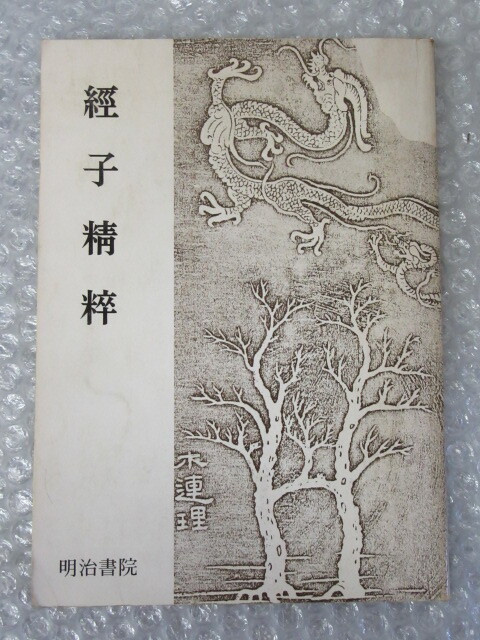 經子精粹
木連理
明治書院